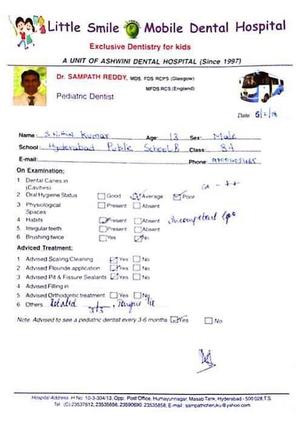 Little Smile Mobile Dental Hospital
Exclusive Dentistry for kids
A UNIT OF ASHWINI DENTAL HOSPITAL (Since 1997)
Dr. SAMPATH REDDY, MDS, FDS RCPS (Glasgow)
MFDS RCS (England)
Pediatric Dentist
Date:
Name: Kumar Age: 13 Sex: Male
School: Hyderabad Public School, B Class: 8
E-mail: Phone:
On Examination:
1 Dental Caries in
(Cavities)
2 Oral Hygiene Status Good Average Poor
3 Physiological Present Absent
Spaces
4 Habits Present Absent Incompetent lips
5 Irregular teeth Present Absent
6 Brushing twice Yes No
Adviced Treatment:
1 Advised Scaling/Cleaning Yes No
2 Advised Flouride application Yes No
3 Advised Pit & Fissure Sealants Yes No
4 Advised Filling in
5 Advised Orthodontic treatment Yes No
6 Others
Note: Advised to see a pediatric dentist every 3-6 months Yes No
Hospital Address: H.No. 10-3-304/13, Opp. Post Office, Humayunnagar, Masab Tank, Hyderabad - 500 028, T.S.
Tel: (C) 23537612, 23535656, 23590690, 23535858, E-mail: sampathcheruku@yahoo.com